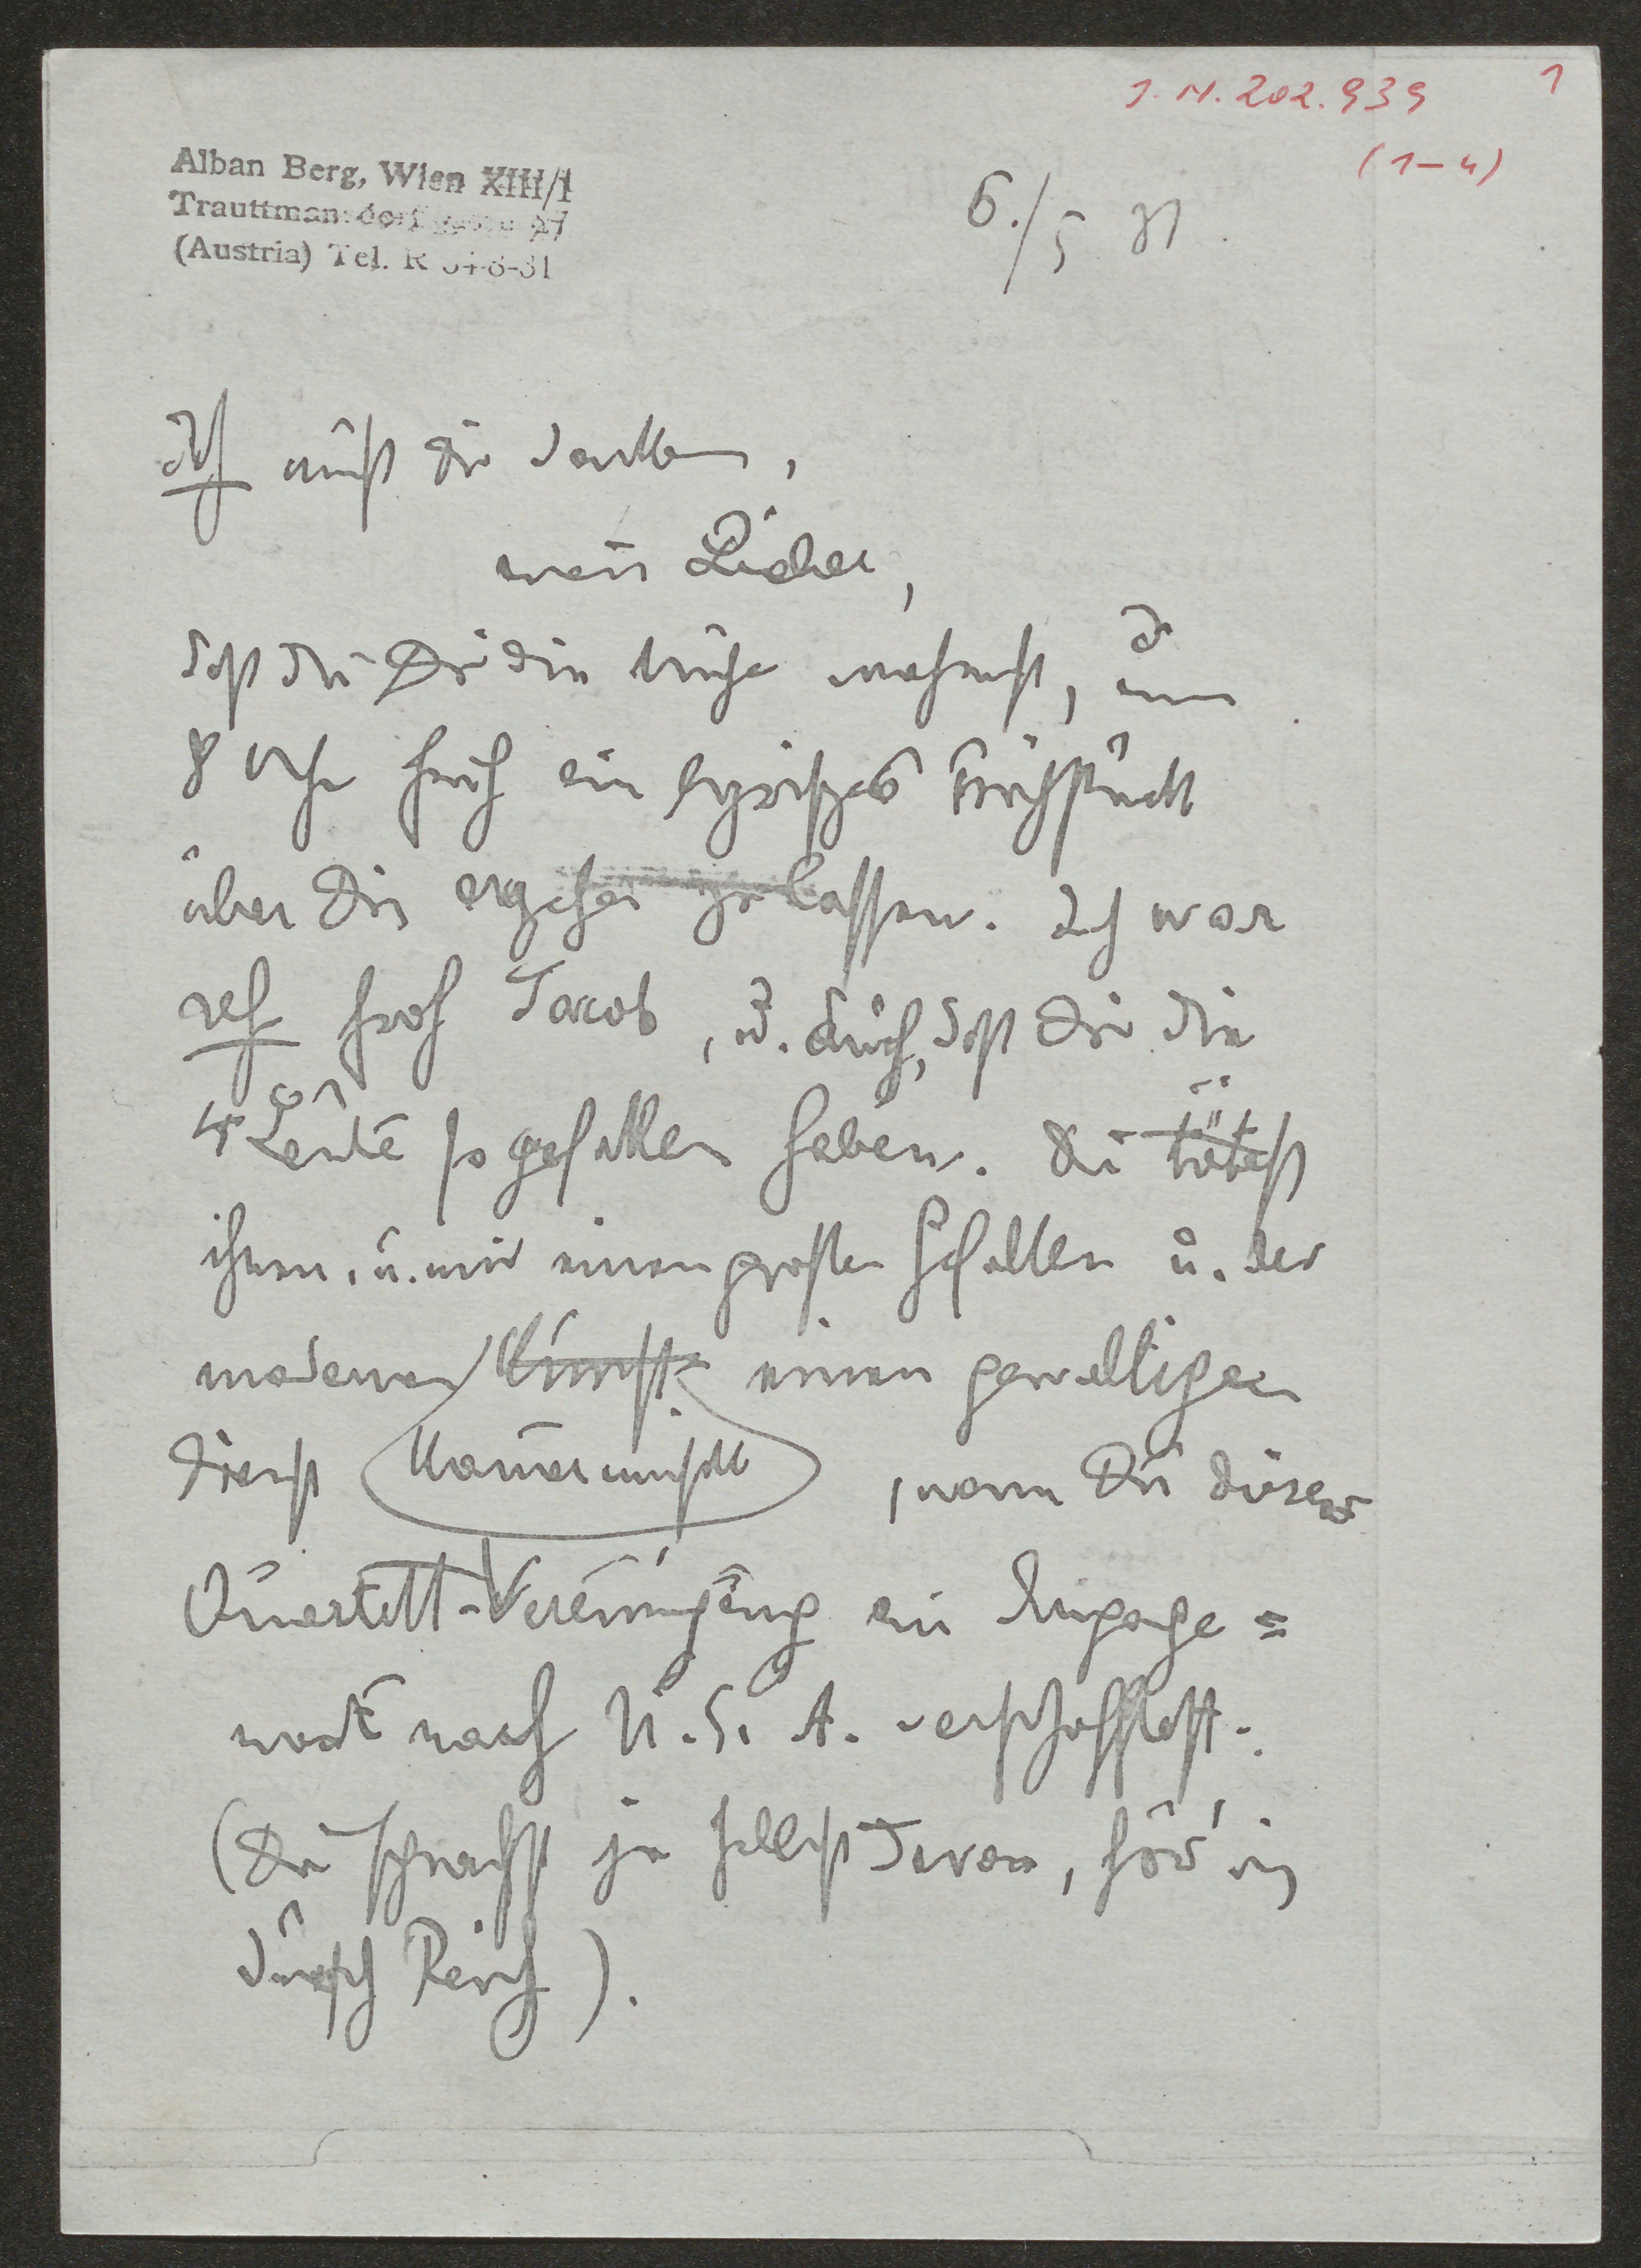 J. N. 202.939
1
(1–4)
Alban Berg, Wien XIII/1
Trauttmansdorffgasse 27
(Austria) Tel. R 34-8-31
6./5 31.
Ich muß Dir danken,
mein Lieber,
daß Du Dir die Mühe nahmst, um
8 Uhr früh ein lyrisches Frühstück
über Dich ergehen zu lassen. Ich war
sehr froh darob, u. auch, daß Dir die
4 Leute so gefallen haben. Du tätest
ihnen, u. mir einen großen Gefallen u. der
modernen Kunst einen gewaltigen
Dienst Kammermusik, wenn Du dieser
Quartett-Vereinigung ein Engage=
ment nach U. S. A. verschafftest.
(Du sprachst ja selbst davon, hör' ich
durch Reich).